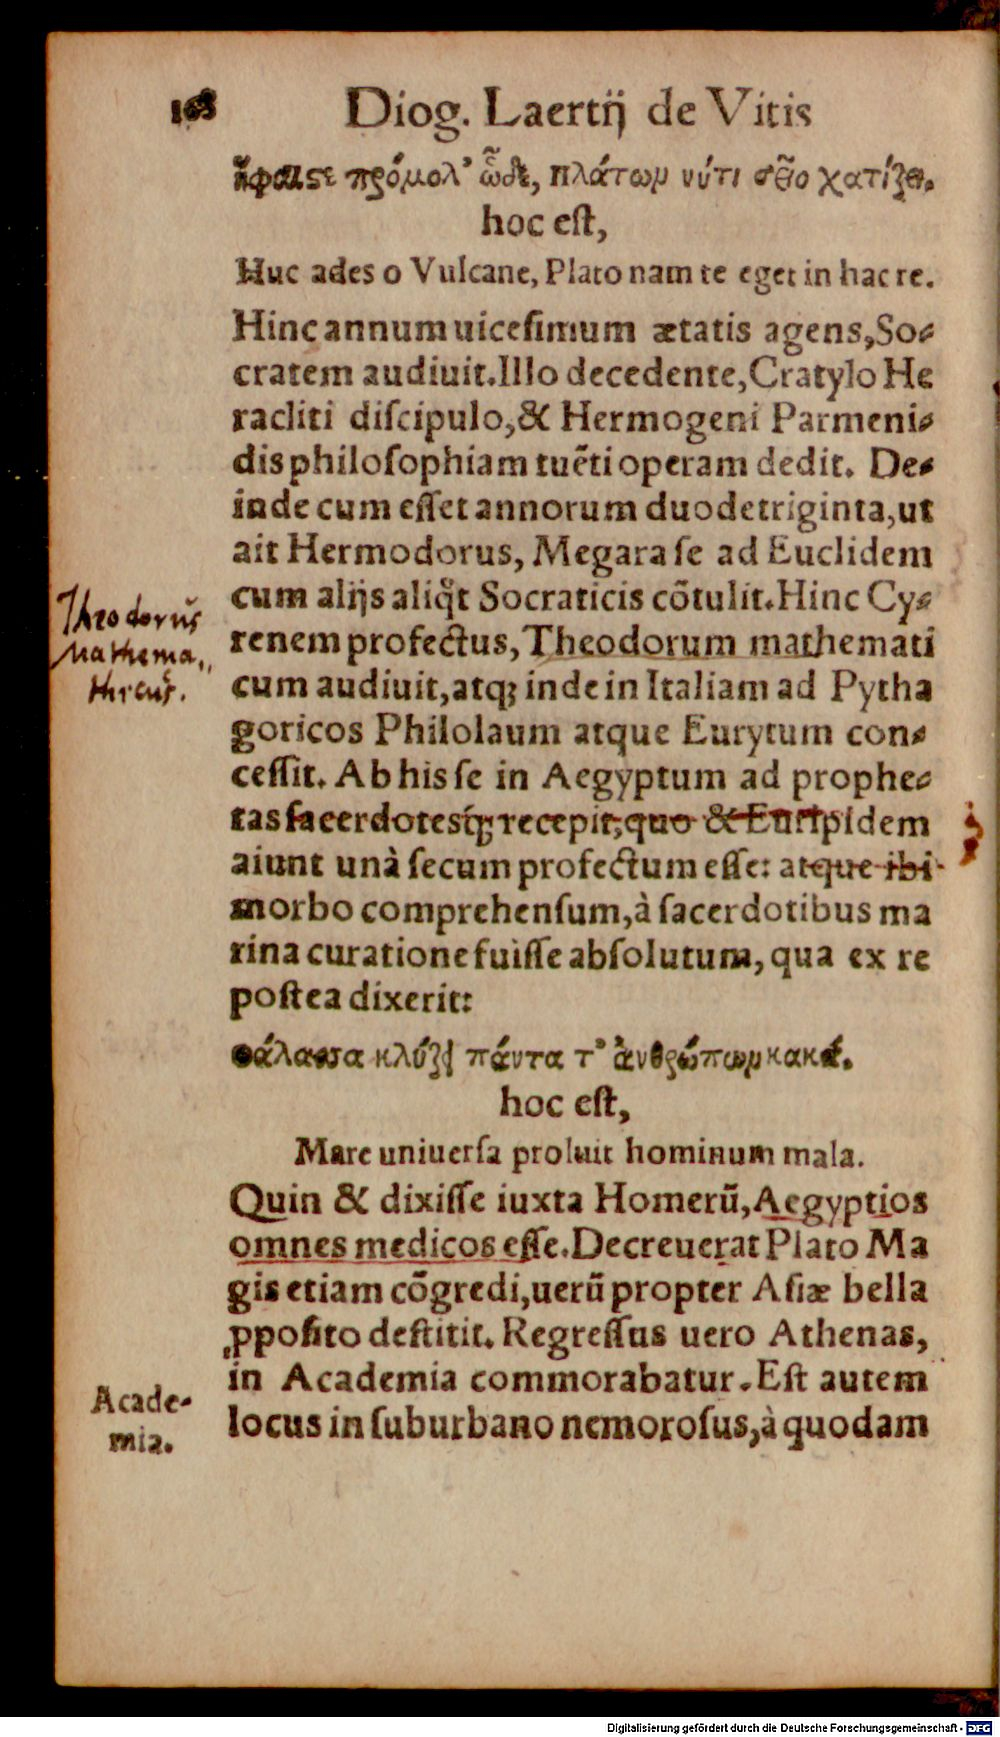 168 Diog. Laertij de Vitis
ἥφαιστε πρόμολ' ὧδε, πλάτωμ νύτι σεῖο χατίζει.
hoc eſt,
Huc ades o Vulcane, Plato nam te eget in hac re.
Hinc annum uiceſimum ætatis agens, So-
cratem audiuit. Illo decedente, Cratylo He
racliti diſcipulo, & Hermogeni Parmeni-
dis philoſophiam tuẽti operam dedit. De-
inde cum eſſet annorum duodetriginta, ut
ait Hermodorus, Megara ſe ad Euclidem
cum alijs aliq̃t Socraticis cõtulit. Hinc Cy-
Theodorus
renem profectus, Theodorum mathemati
Mathema,,
cum audiuit, atq; inde in Italiam ad Pytha
ticus.
goricos Philolaum atque Eurytum con-
ceſſit. Ab his ſe in Aegyptum ad prophe-
tas ſacerdotesq́; recepit, quo & Euripidem
aiunt unà ſecum profectum eſſe: atque ibi
morbo comprehenſum, à ſacerdotibus ma
rina curatione fuiſſe abſolutum, qua ex re
poſtea dixerit:
θάλασσα κλύζει πάντα τ' ἀνθρώπωμ κακά.
hoc eſt,
Mare uniuerſa proluit hominum mala.
Quin & dixiſſe iuxta Homerũ, Aegyptios
omnes medicos eſſe. Decreuerat Plato Ma
gis etiam cõgredi, uerũ propter Aſiæ bella
ꝓpoſito deſtitit. Regreſſus uero Athenas,
in Academia commorabatur. Eſt autem
Acade-
mia.
locus in ſuburbano nemoroſus, à quodam
Digitalisierung gefördert durch die Deutsche Forschungsgemeinschaft - DFG